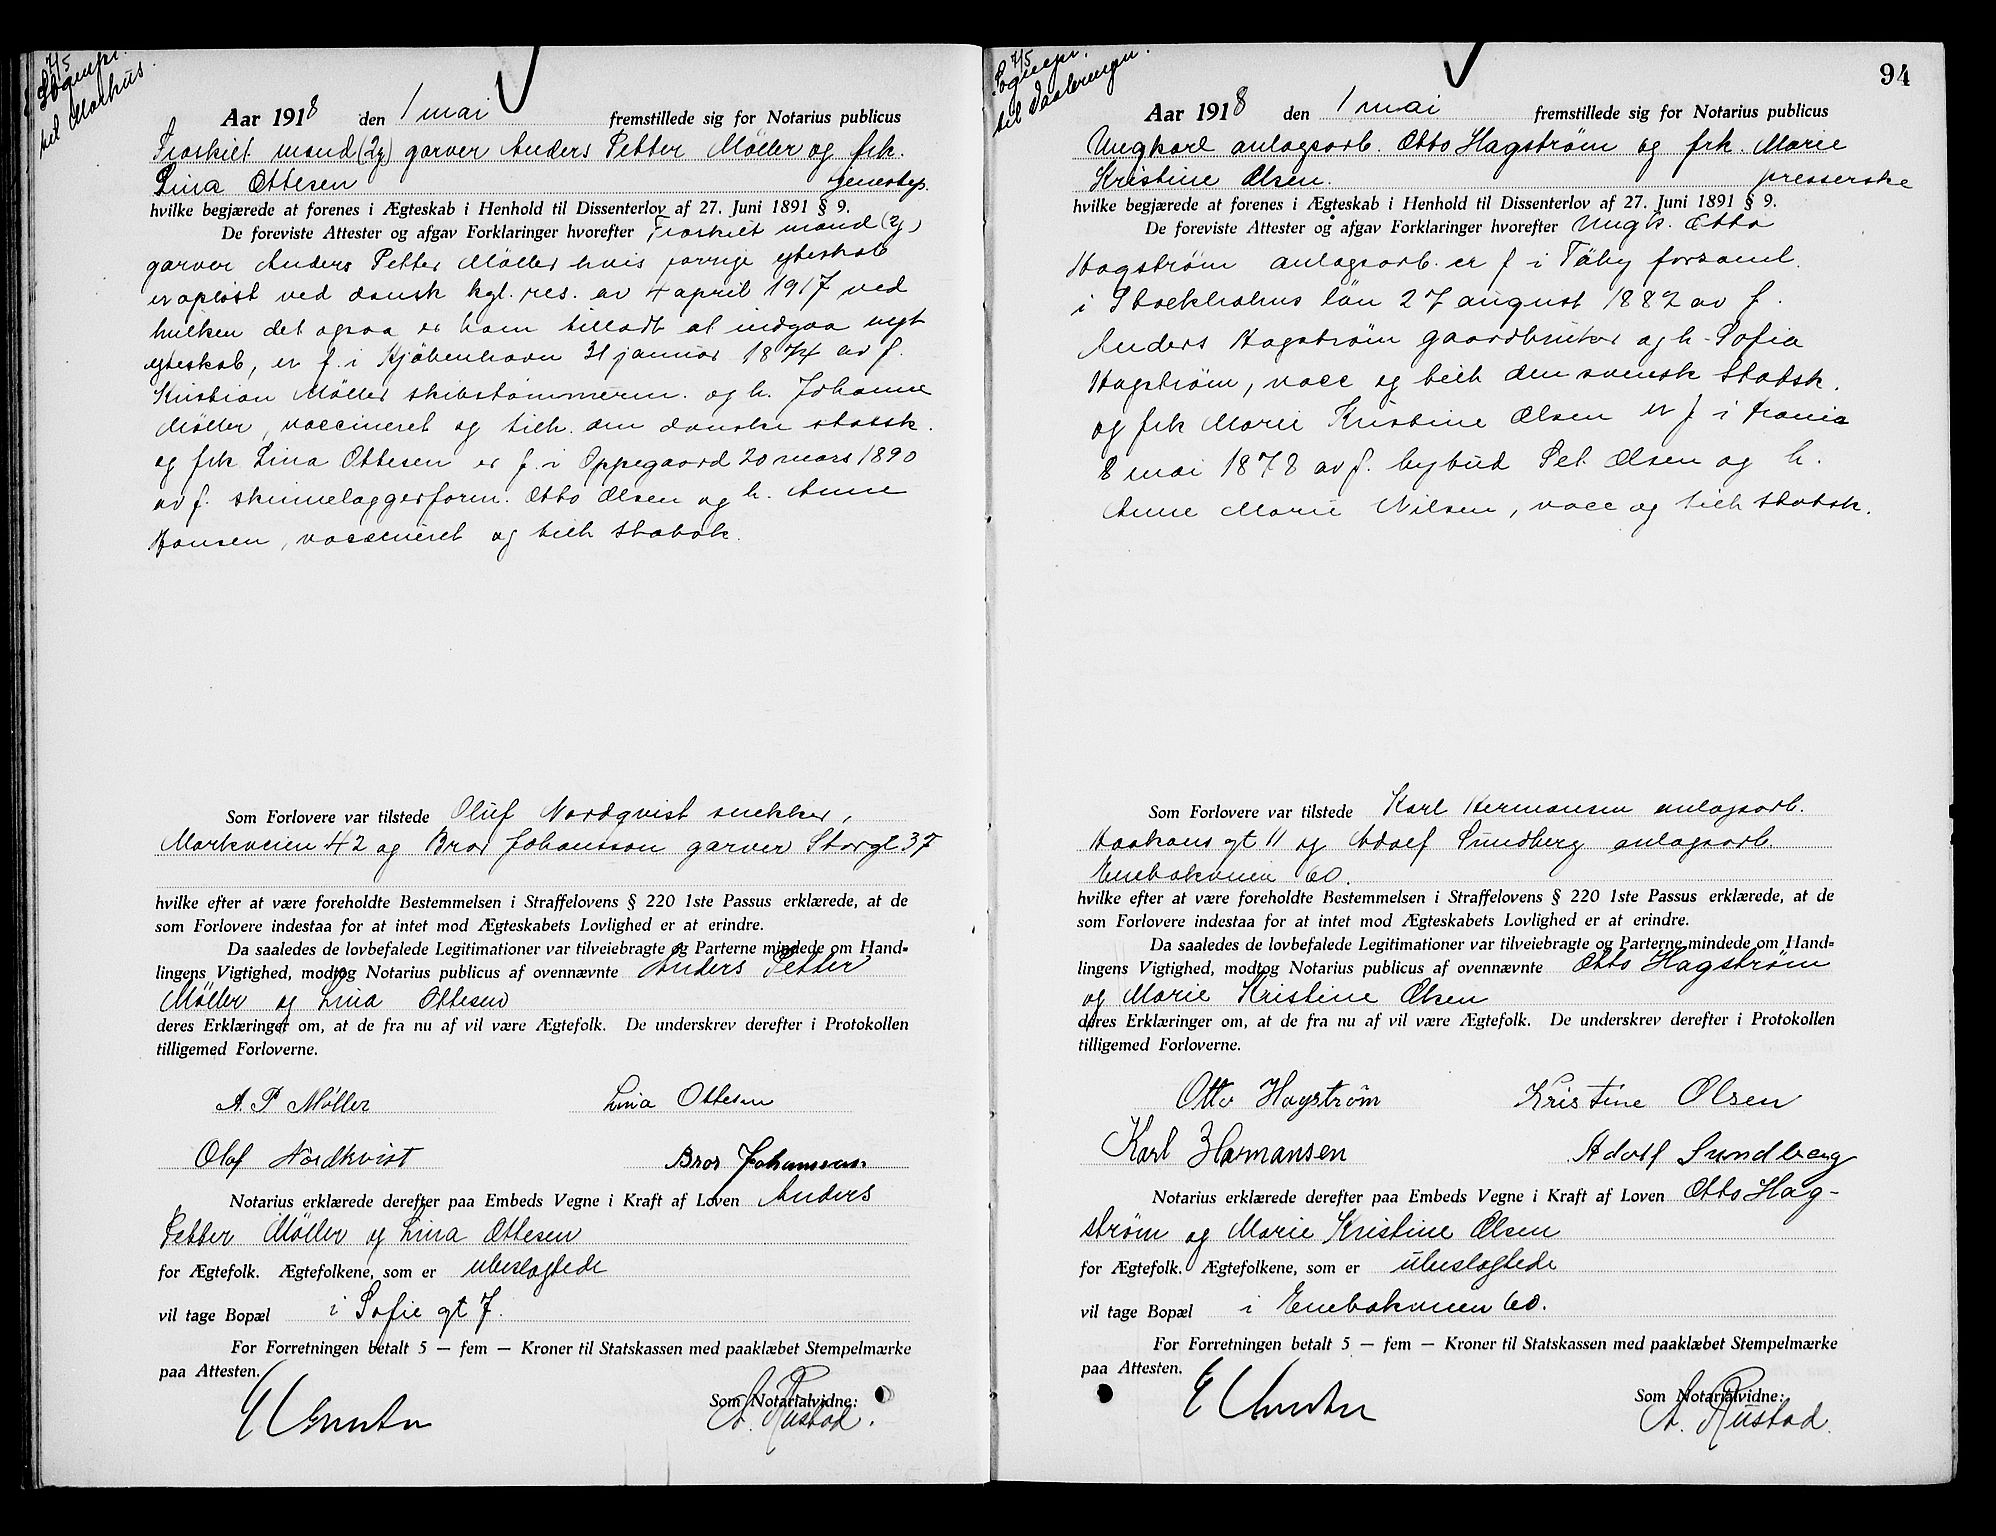 7/5
Sognepr.
til Markus.
Aar 1918 den 1 mai fremstillede sig for Notarius publicus
Fraskilt mand (2g) garver Anders Petter Möller og frk.
Lina Ottesen
hvilke begjærede at forenes i Ægteskab i Henhold til Dissenterlov af 27. Juni 1891 § 9.
De foreviste Attester og afgav Forklaringer hvorefter Fraskilt mand (2g)
garver Anders Petter Möller hvis forrige egteskab
er opløst ved dansk kgl. res. av 4 april 1917 ved
hvilken det ogsaa er ham tilladt at indgaa nyt
egteskab, er f. i Kjöbenhavn 31 januar 1874 av f.
Kristian Möller skibstömmerm. og h. Johanne
Möller, vaccineret og tilh. den danske statsk.
og frk. Lina Ottesen er f. i Oppegaard 20 mars 1890
av f. skinnelæggerform. Otto Olsen og h. Anne
Hansen, vaccineret og tilh statsk.
Som Forlovere var tilstede Oluf Nordqvist snekker,
Markveien 42 og Bror Johansson garver Storgt. 37
hvilke efter at være foreholdte Bestemmelsen i Straffelovens § 220 1ste Passus erklærede, at de
som Forlovere indestaa for at intet mod Ægteskabets Lovlighed er at erindre.
Da saaledes de lovbefalede Legitimationer var tilveiebragte og Parterne mindede om Hand-
lingens Vigtighed, modtog Notarius publicus af ovennævnte Anders Petter
Möller og Lina Ottesen
deres Erklæringer om, at de fra nu af vil være Ægtefolk. De underskrev derefter i Protokollen
tilligemed Forloverne.
A. P Möller Lina Ottesen
Olof Nordkvist Bror Johansson.
Notarius erklærede derefter paa Embeds Vegne i Kraft af Loven Anders
Petter Möller og Lina Ottesen
for Ægtefolk. Ægtefolkene, som er ubeslegtede
vil tage Bopæl i Sofie gt 7.
For Forretningen betalt 5 — fem — Kroner til Statskassen med paaklæbet Stempelmærke
paa Attesten.
Som Notarialvidne:
A. Rustad.
94
7/5
Sognepr.
til Vaalerengen.
Aar 1918 den 1 mai fremstillede sig for Notarius publicus
Ungkarl anlagsarb. Otto Hagström og frk. Marie
Kristine Olsen. presserske
hvilke begjærede at forenes i Ægteskab i Henhold til Dissenterlov af 27. Juni 1891 § 9.
De foreviste Attester og afgav Forklaringer hvorefter Ungk. Otto
Hagström anlagsarb. er f i Täby forsaml.
i Stockholms län 27 august 1882 av f.
Anders Hagström gaardbruker og h. Sofia
Hagström, vacc og tilh den svensk statsk.
og frk Marie Kristine Olsen er f i Krania
8 mai 1878 av f. bybud Pet. Olsen og h.
Anne Marie Nilsen, vacc og tilh statsk.
Som Forlovere var tilstede Karl Hermansen anlagsarb.
Haakons gt 11 og Adolf Sundberg anlagsarb.
Enebakveien 60.
hvilke efter at være foreholdte Bestemmelsen i Straffelovens § 220 1ste Passus erklærede, at de
som Forlovere indestaa for at intet mod Ægteskabets Lovlighed er at erindre.
Da saaledes de lovbefalede Legitimationer var tilveiebragte og Parterne mindede om Hand-
lingens Vigtighed, modtog Notarius publicus af ovennævnte Otto Hagström
og Marie Kristine Olsen
deres Erklæringer om, at de fra nu af vil være Ægtefolk. De underskrev derefter i Protokollen
tilligemed Forloverne.
Otto Hagström Kristine Olsen
Karl Harmansen Adolf Sundberg
Notarius erklærede derefter paa Embeds Vegne i Kraft af Loven Otto Hag-
ström og Marie Kristine Olsen
for Ægtefolk. Ægtefolkene, som er ubeslegtede
vil tage Bopæl i Enebakveien 60.
For Forretningen betalt 5 — fem — Kroner til Statskassen med paaklæbet Stempelmærke
paa Attesten.
Som Notarialvidne:
A. Rustad.